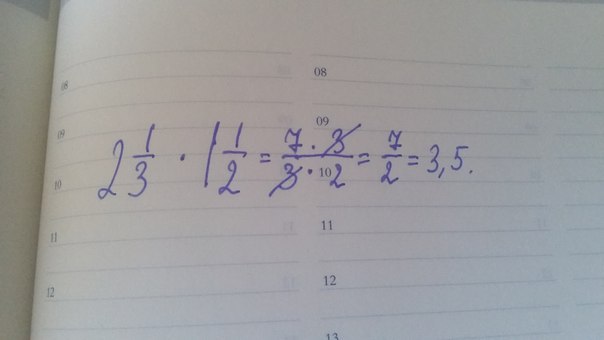 08
08
09
09
2 1/3 · 1 1/2 = 7·3/3·2 = 7/2 = 3,5.
10
10
11
11
12
12
13